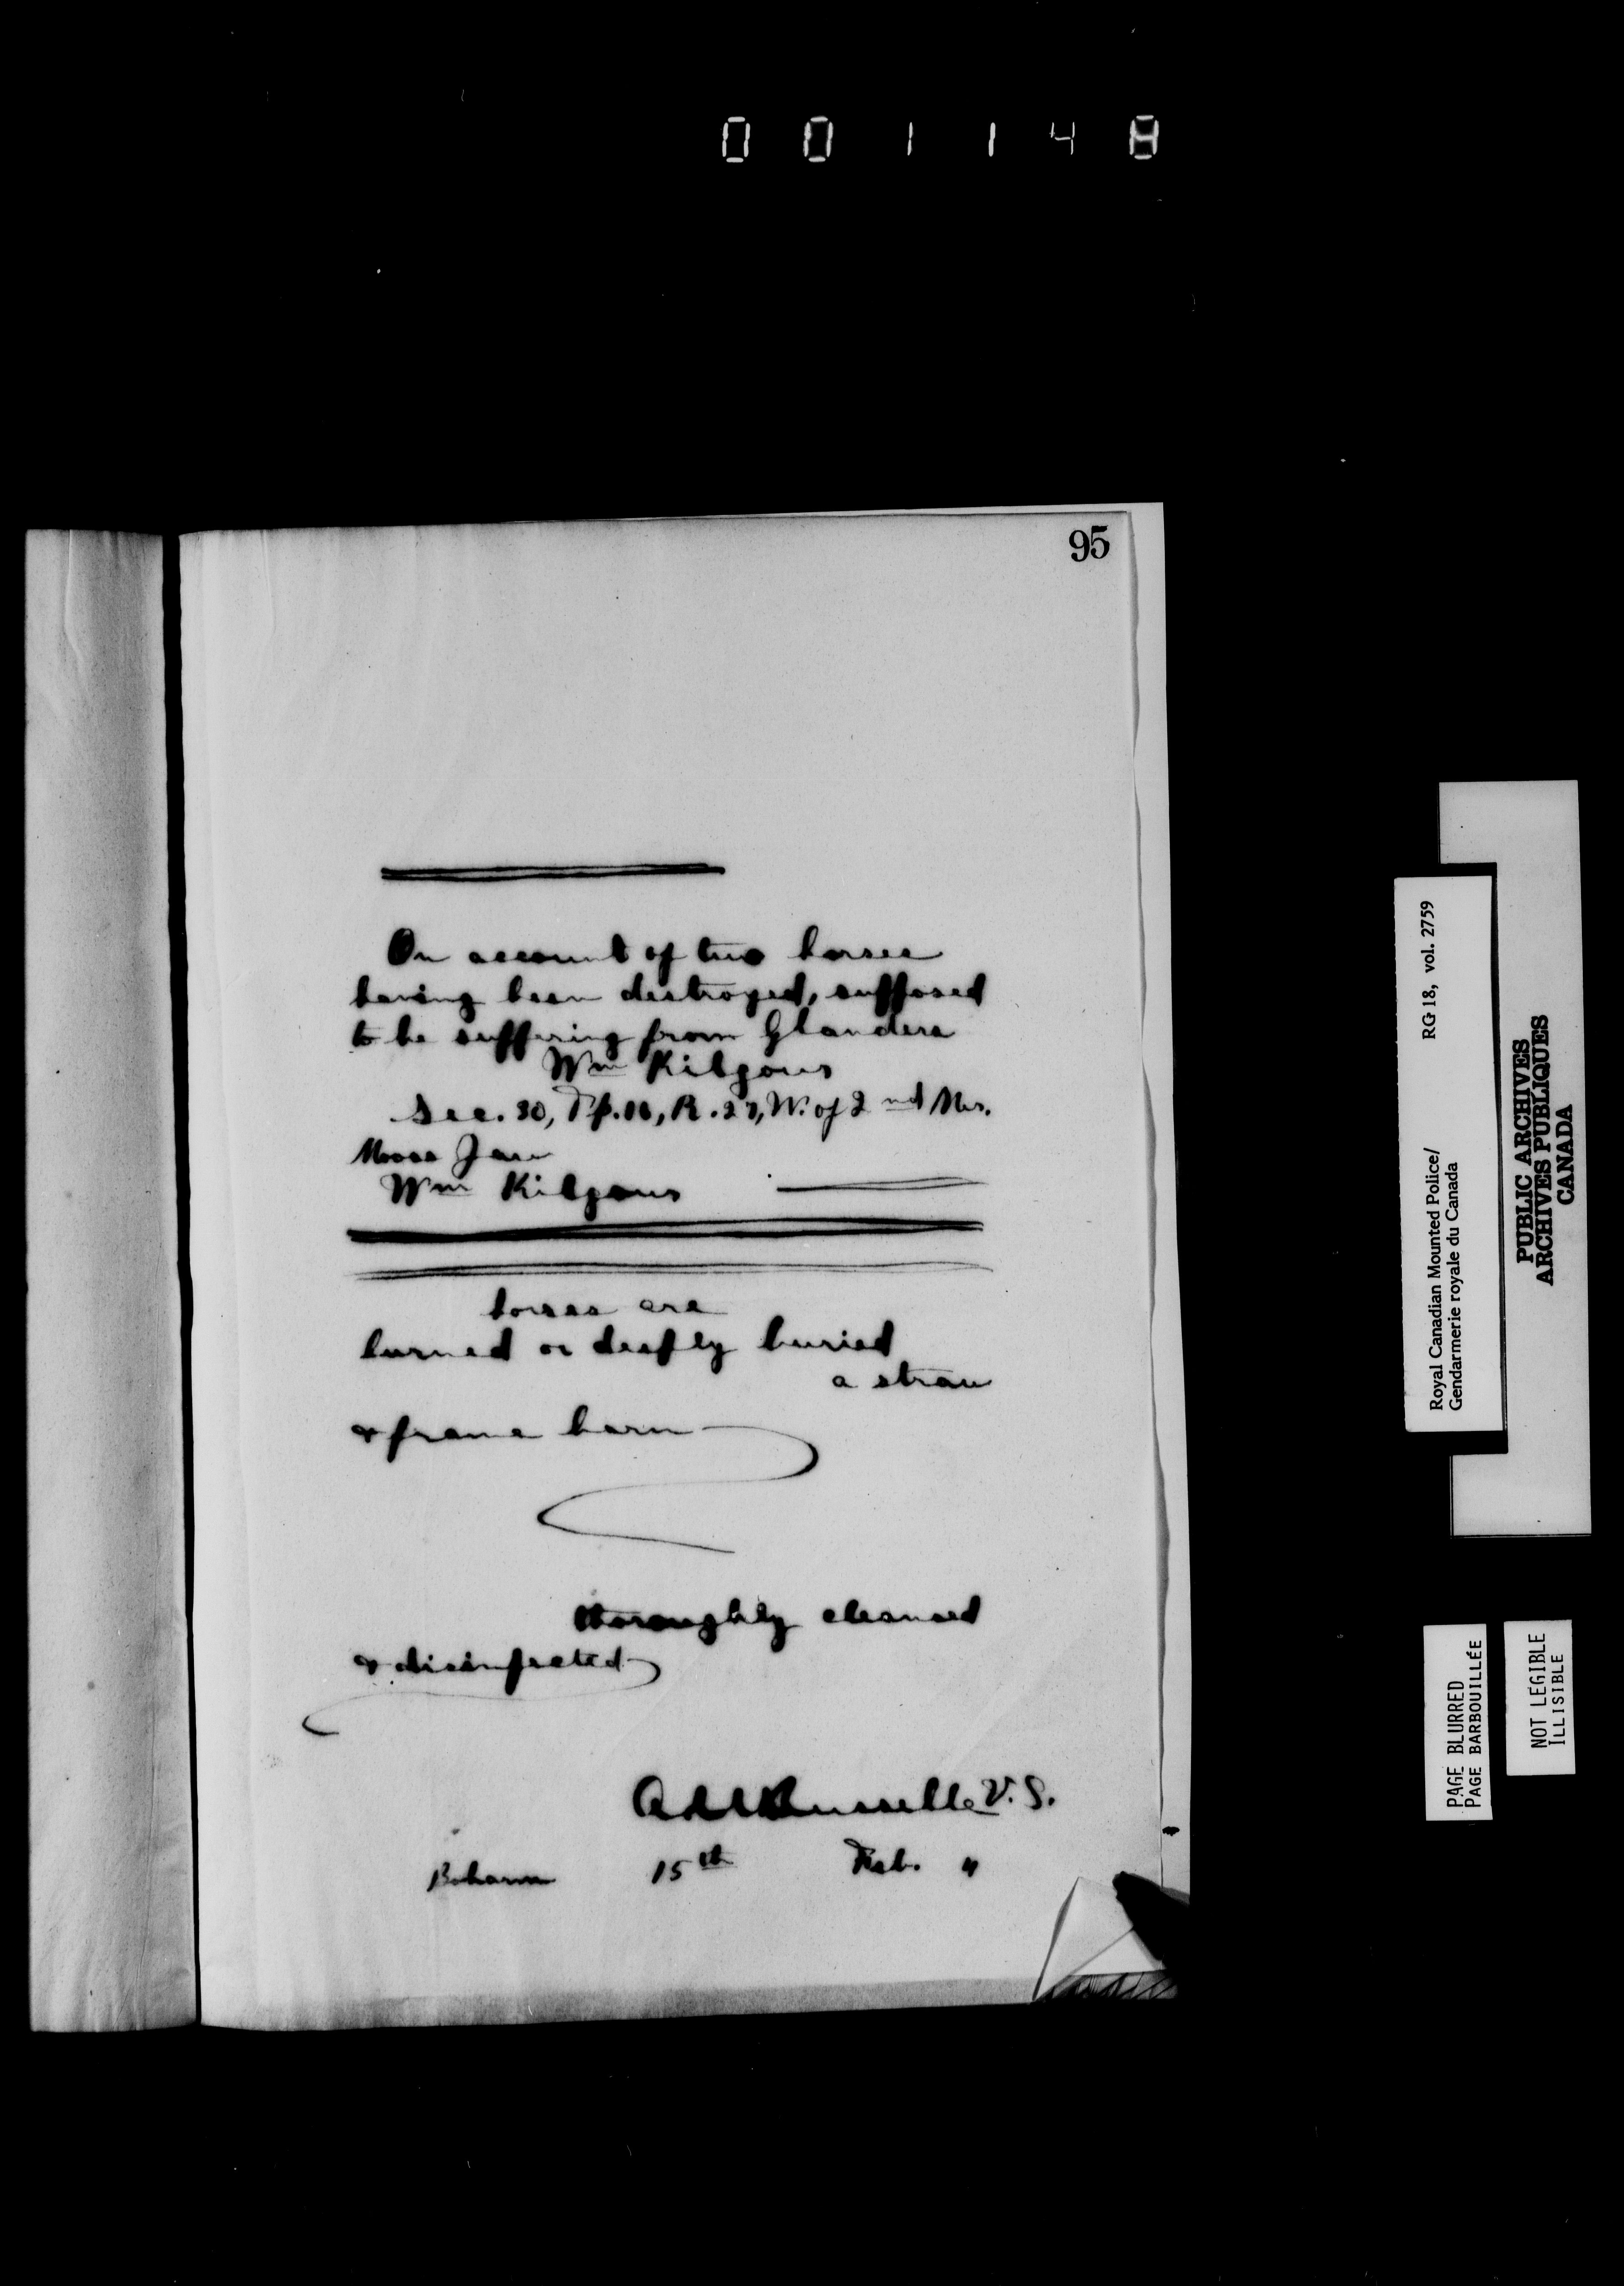 001148
95
On account of two horses
having been destroyed, supposed
to be suffering from Glanders
Wm Kilgour
Sec. 30, Tp. 16, R. 27, W. of 2nd Mer.
Moose Jaw
Wm Kilgour
horses are
burned or deeply buried
a straw
& frame barn
thoroughly cleansed
& disinfected
Russelle V.S.
Boharm 15th Feb. "
Royal Canadian Mounted Police/ RG 18, vol. 2759
Gendarmerie royale du Canada
PUBLIC ARCHIVES
ARCHIVES PUBLIQUES
CANADA
PAGE BLURRED
PAGE BARBOUILLÉE
NOT LEGIBLE
ILLISIBLE